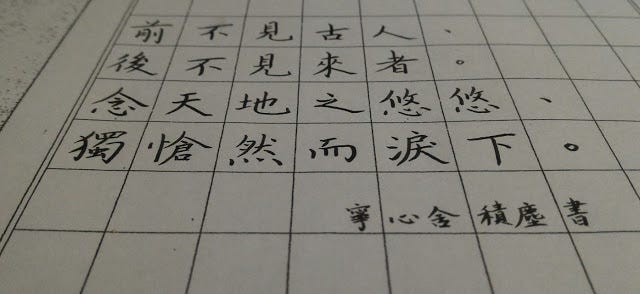 前不見古人、
後不見來者。
念天地之悠悠、
獨愴然而淚下。
寧心舍 積塵書